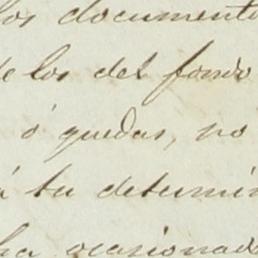 los documento
de los del fondo
ó quedar, no
á tu determin
ha ocasionad